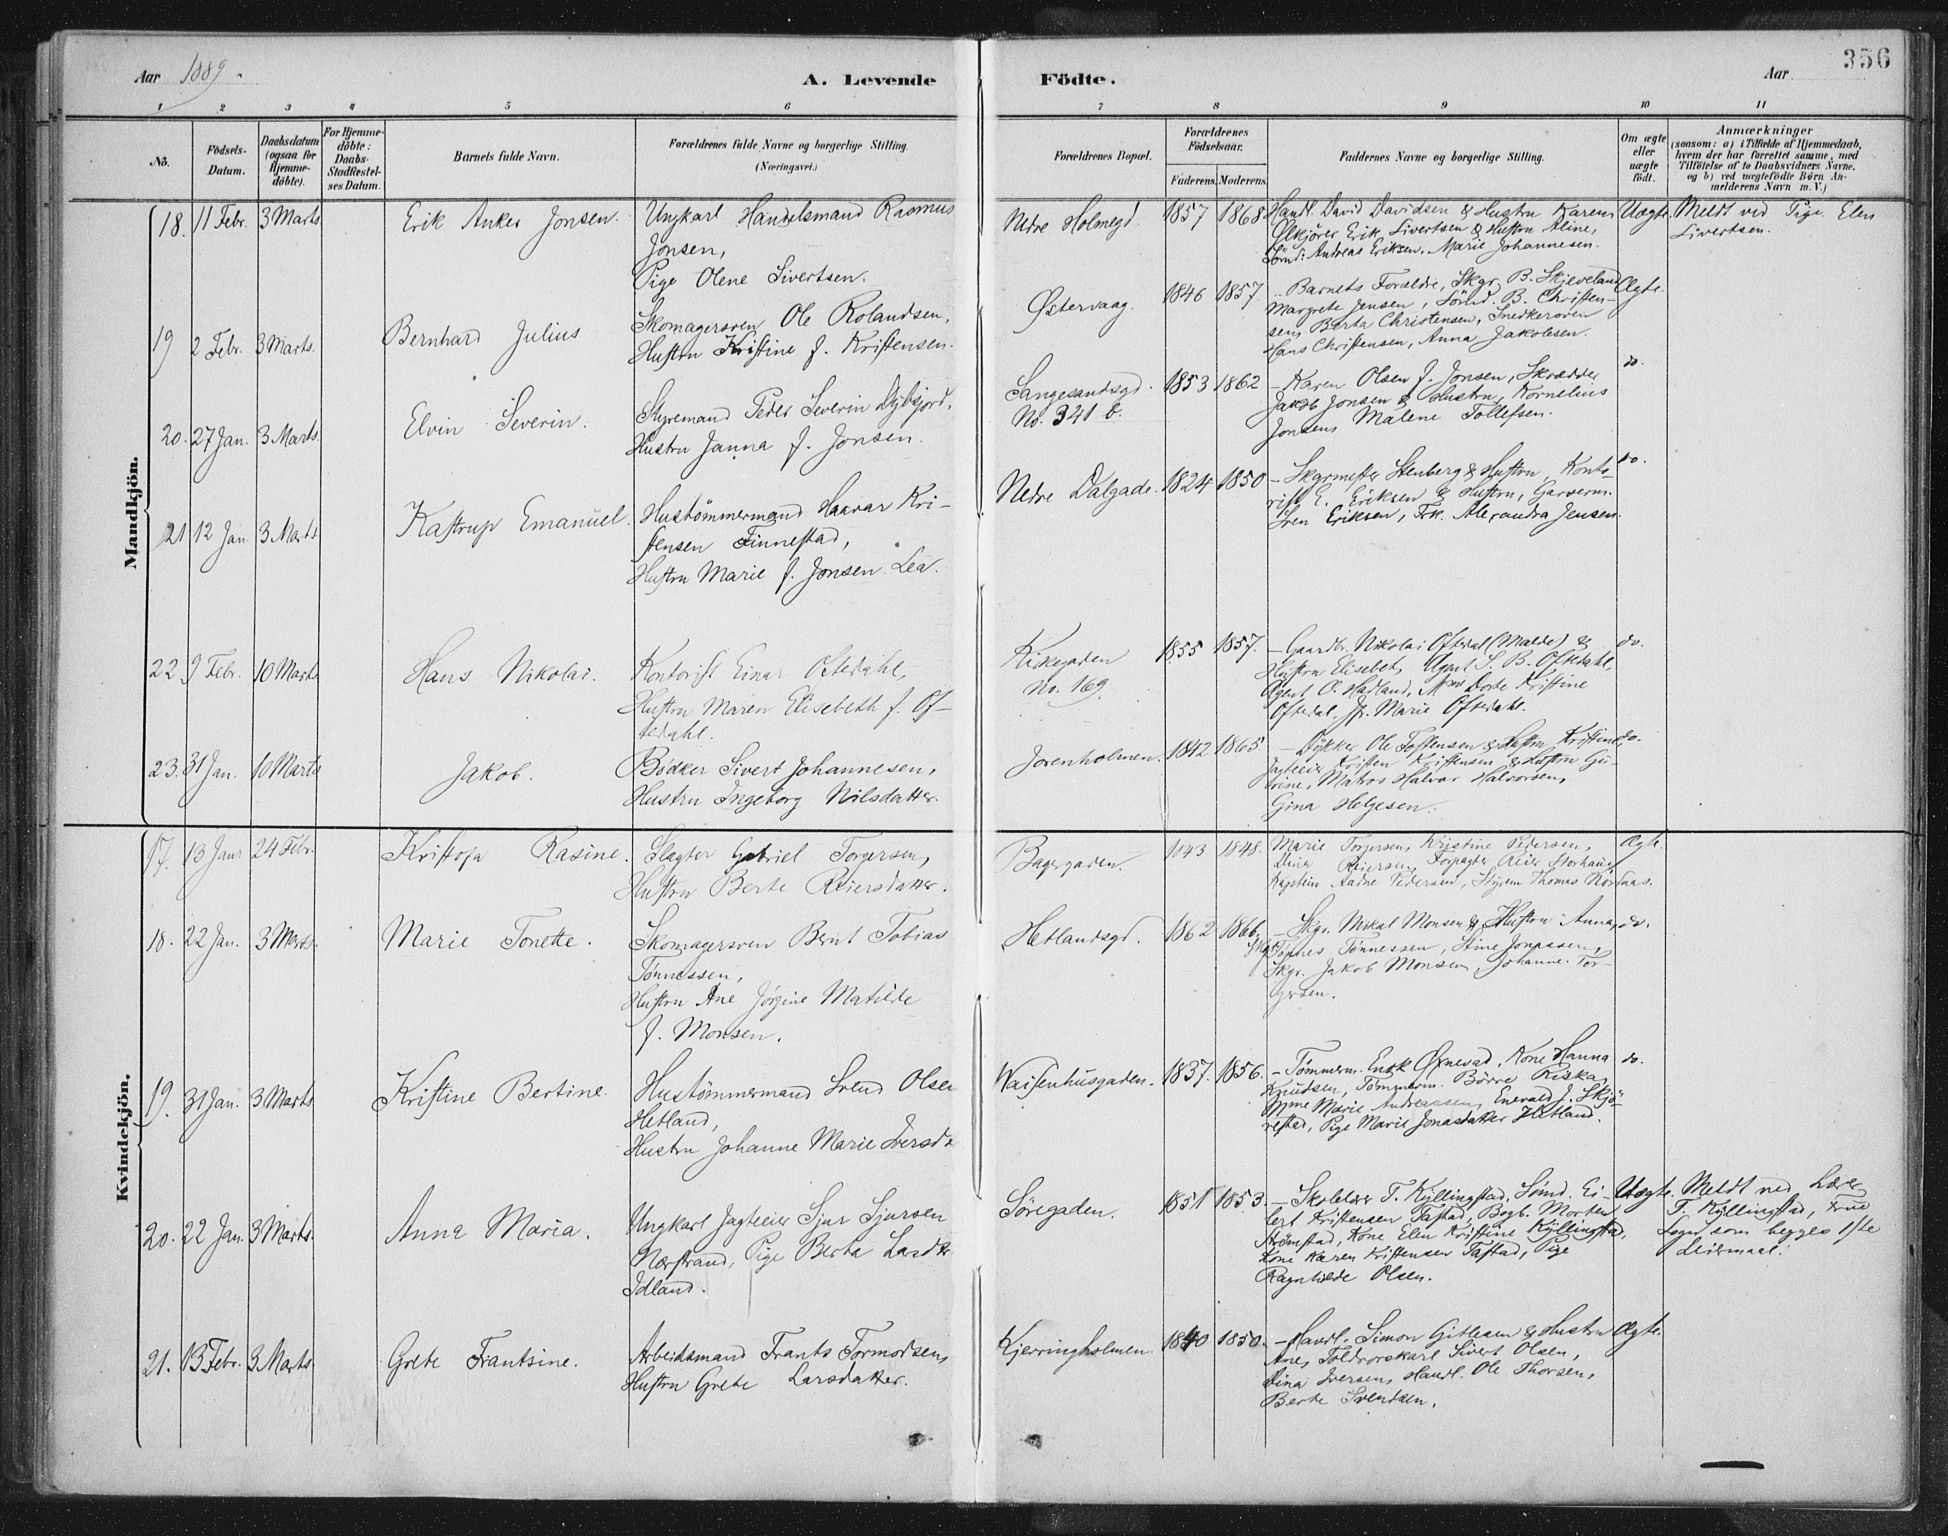 356
Aar 1889.
A. Levende
Födte.
Aar
1 2 3 4 5 6 7 8 9 10 11
No.
Födsels-
Datum.
Daabsdatum
(ogsaa for
Hjemme-
döbte).
For Hjemme-
döbte:
Daabs-
Stadfæstel-
ses Datum.
Barnets fulde Navn.
Forældrenes fulde Navne og borgerlige Stilling.
(Næringsvei.)
Forældrenes Bopæl.
Forældrenes
Födselsaar.
Faderens. Moderens.
Faddernes Navne og borgerlige Stilling.
Om ægte
eller
uægte
födt.
Anmærkninger
(saasom: a) i Tilfælde af Hjemmedaab,
hvem der har forrettet samme, med
Tilföielse af to Daabsvidners Navne,
og b) ved uægtefödte Börn An-
melderens Navn m. V.)
Mandkjön.
18. 11 Febr. 3 Marts Erik Anker Jonsen.
Ungkarl Handelsmand Rasmus
Jonsen,
Pige Olene Sivertsen.
Nedre Holmegd. 1857 1868
Handl. David Davidsen & Hustru Karen
Ølkjører Erik Sivertsen & Hustru Aline,
Sømd: Andreas Eriksen, Marie Johannesen.
Uægte. Meldt ved Pige Elen
Sivertsen.
19 2 Febr. 3 Marts. Bernhard Julius
Skomagersven Ole Rolandsen,
Hustru Kristine f. Kristensen.
Østervaag. 1846 1857
- Barnets Forældre, Skgr. B. Skjeveland
Margrete Jensen, Sømd. B. Christen-
sen, Berta Christensen, Snedkersven
Hans Christensen, Anna Jakobsen.
Ægte.
20. 27 Jan. 3 Marts. Elvin Severin.
Styremand Peder Severin Dybfjord,
Hustru Janna f. Jonsen.
Sangesandsgd.
No. 341 b.
1853 1862
- Karen Olsen f. Jonsen, Skrædder
Jakob Jonsen & Hustru, Kornelius
Jonsen, Malene Tollefsen.
do.
21 12 Jan 3 Marts Kastrup Emanuel.
Hustømmermand Haavar Kri-
stensen Finnestad,
Hustru Marie f. Jonsen Lea.
Nedre Dalgade. 1824 1850
- Skgrmester Stenberg & Hustru, Konto-
rist E. Eriksen & Hustru, Garverm.
Iren Eriksen, Frk. Alexandra Jensen.
do.
22 9 Febr. 10 Marts Hans Nikolai.
Kontorist Einar Oftedahl,
Hustru Maren Elisebeth f. Of-
tedahl.
Kirkegaden
No. 169.
1855 1857.
- Gaardbr. Nikolai Oftedal (Malde) &
Hustru Elisebet, Agent S. B. Oftedahl,
Agent O. Hadland, Mme Dorte Kristine
Oftedal, Jfr. Marie Oftedahl.
do.
23. 31 Jan. 10 Marts Jakob.
Bødker Sivert Johannesen,
Hustru Ingeborg Nilsdatter.
Jorenholmen. 1842 1865.
- Dykker Ole Tostensen & Hustru Kristine,
Jagteeier Kristen Kristensen & Hustru Gu-
rine, Matros Halvor Halvorsen,
Gina Helgesen.
do.
Kvindekjön.
17. 13 Janr 24 Febr. Kristofa Rasine.
Slagter Gabriel Torgersen,
Hustru Berte Reiersdatter.
Bagergaden. 1843 1848.
Marie Torgersen, Kristine Pedersen,
Elina Reiersen, Forpagter Reier Storhaug
Kaptein Aadne Pedersen, Styrem Thomas
Ægte.
18. 22 Jan. 3 Marts. Marie Tonette.
Skomagersven Bernt Tobias
Tønnessen,
Hustru Ane Jørgine Matilde
f. Monsen.
Hetlandsgd. 1862 1866.
- Skgr. Mikal Monsen & Hustru Anna,
Skgr Tønnes Tønnessen, Stine Jonassen,
Skgr. Jakob Monsen, Johanne Tor-
gersen.
do.
19. 31 Jan. 3 Marts. Kristine Bertine.
Hustømmermand Svend Olsen
Hetland,
Hustru Johanne Marie Iversdr
Waisenhusgaden. 1837. 1856.
- Tømmerm. Enok Ørnevad, Kone Hanna
Knudsen, Tømmerm. Børre Riska,
Mme Marie Andreassen, Enevald J. Skjö-
restad, Pige Marie Jonasdatter Hetland.
do.
20. 22 Jan. 3 Marts. Anna Maria.
Ungkarl Jagteeier Sjur Sjursen
Nærstrand, Pige Berta Larsdtr
Idland.
Søregaden. 1851 1853.
- Skolelærer T. Kyllingstad, Sømd. Ei-
lert Kristensen Tastad, Bogb. Morten
Strømstad, Kone Elen Kristine Kyllingstad,
Kone Karen Kristensen Tastad, Pige
Ragnhilde Olsen.
Uægte. Meldt ved Lærer
T. Kyllingstad, Frue
Sogn, som begges 1ste
Leiermaal.
21. 13 Febr. 3 Marts. Grete Frantsine.
Arbeidsmand Frants Tormodsen,
Hustru Grete Larsdatter.
Kjerringholmen. 1840 1850.
- Handl. Simon Gitlesen & Hustru
Ane, Toldrorskarl Sivert Olsen,
Dina Iversen, Handl. Ole Thorsen,
Berte Svendsen.
Ægte.